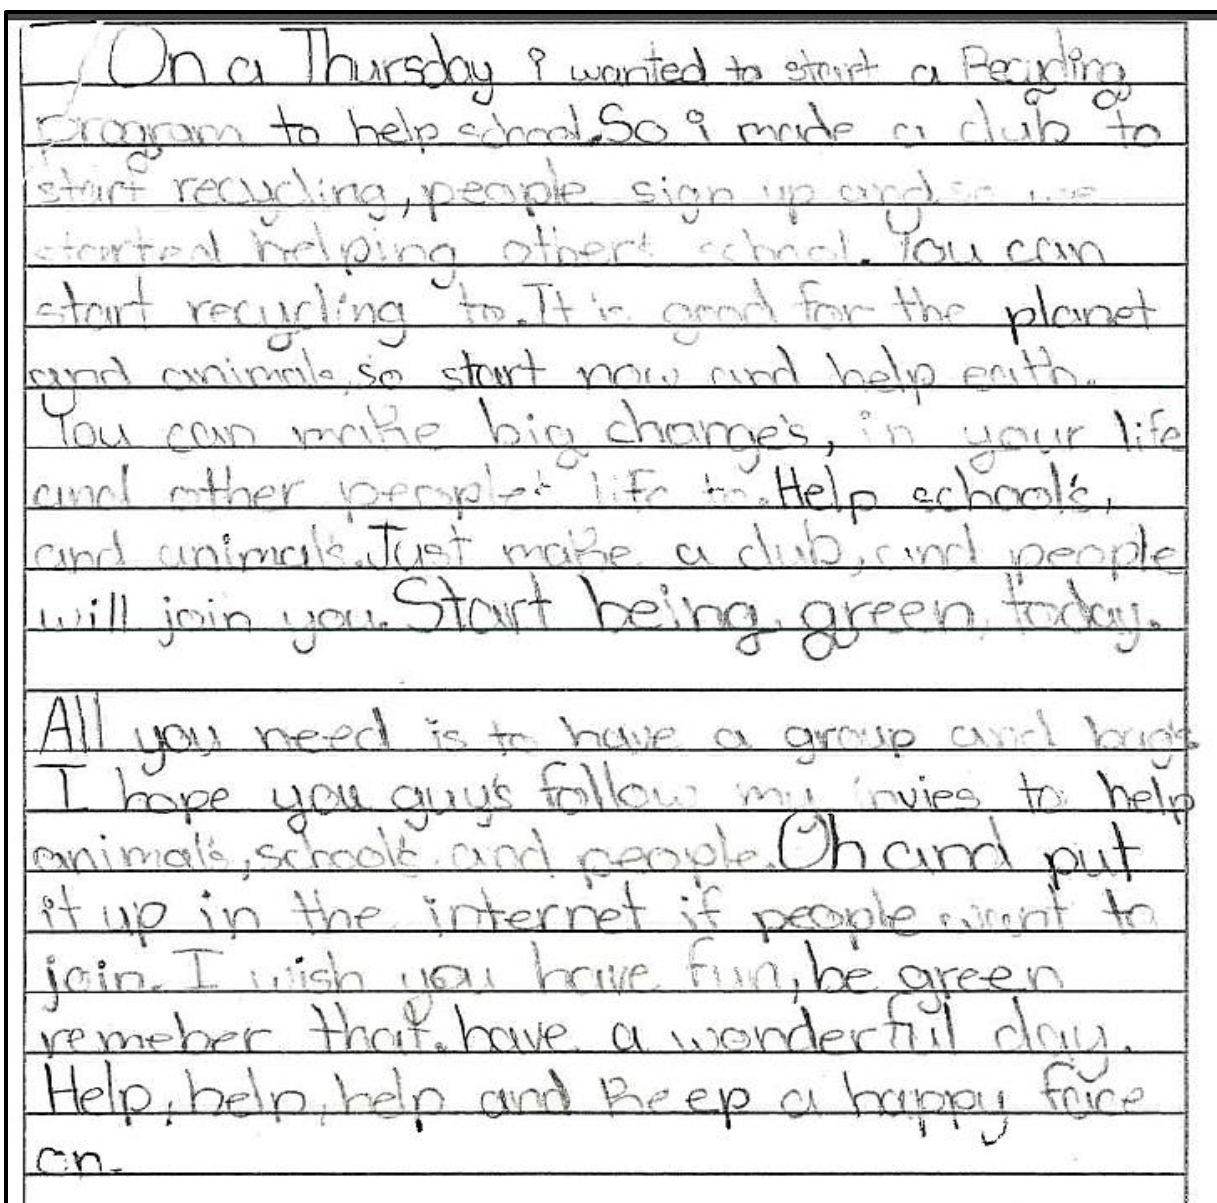 On a Thursday i wanted to start a Recycling
program to help school. So i made a club to
start recycling, people sign up and so we
started helping others school. You can
start recycling to. It is good for the planet
and animals, so start now and help eath.
You can make big change's, in your life
and other people's life to. Help school's,
and animal's. Just make a club, and people
will join you. Start being green, today.
All you need is to have a group and bag's
I hope you guy's follow my invies to help
animal's, school's and people. Oh and put
it up in the internet if people want to
join. I wish you have fun, be green
remeber that. have a wonderful day.
Help, help, help and keep a happy face
on.